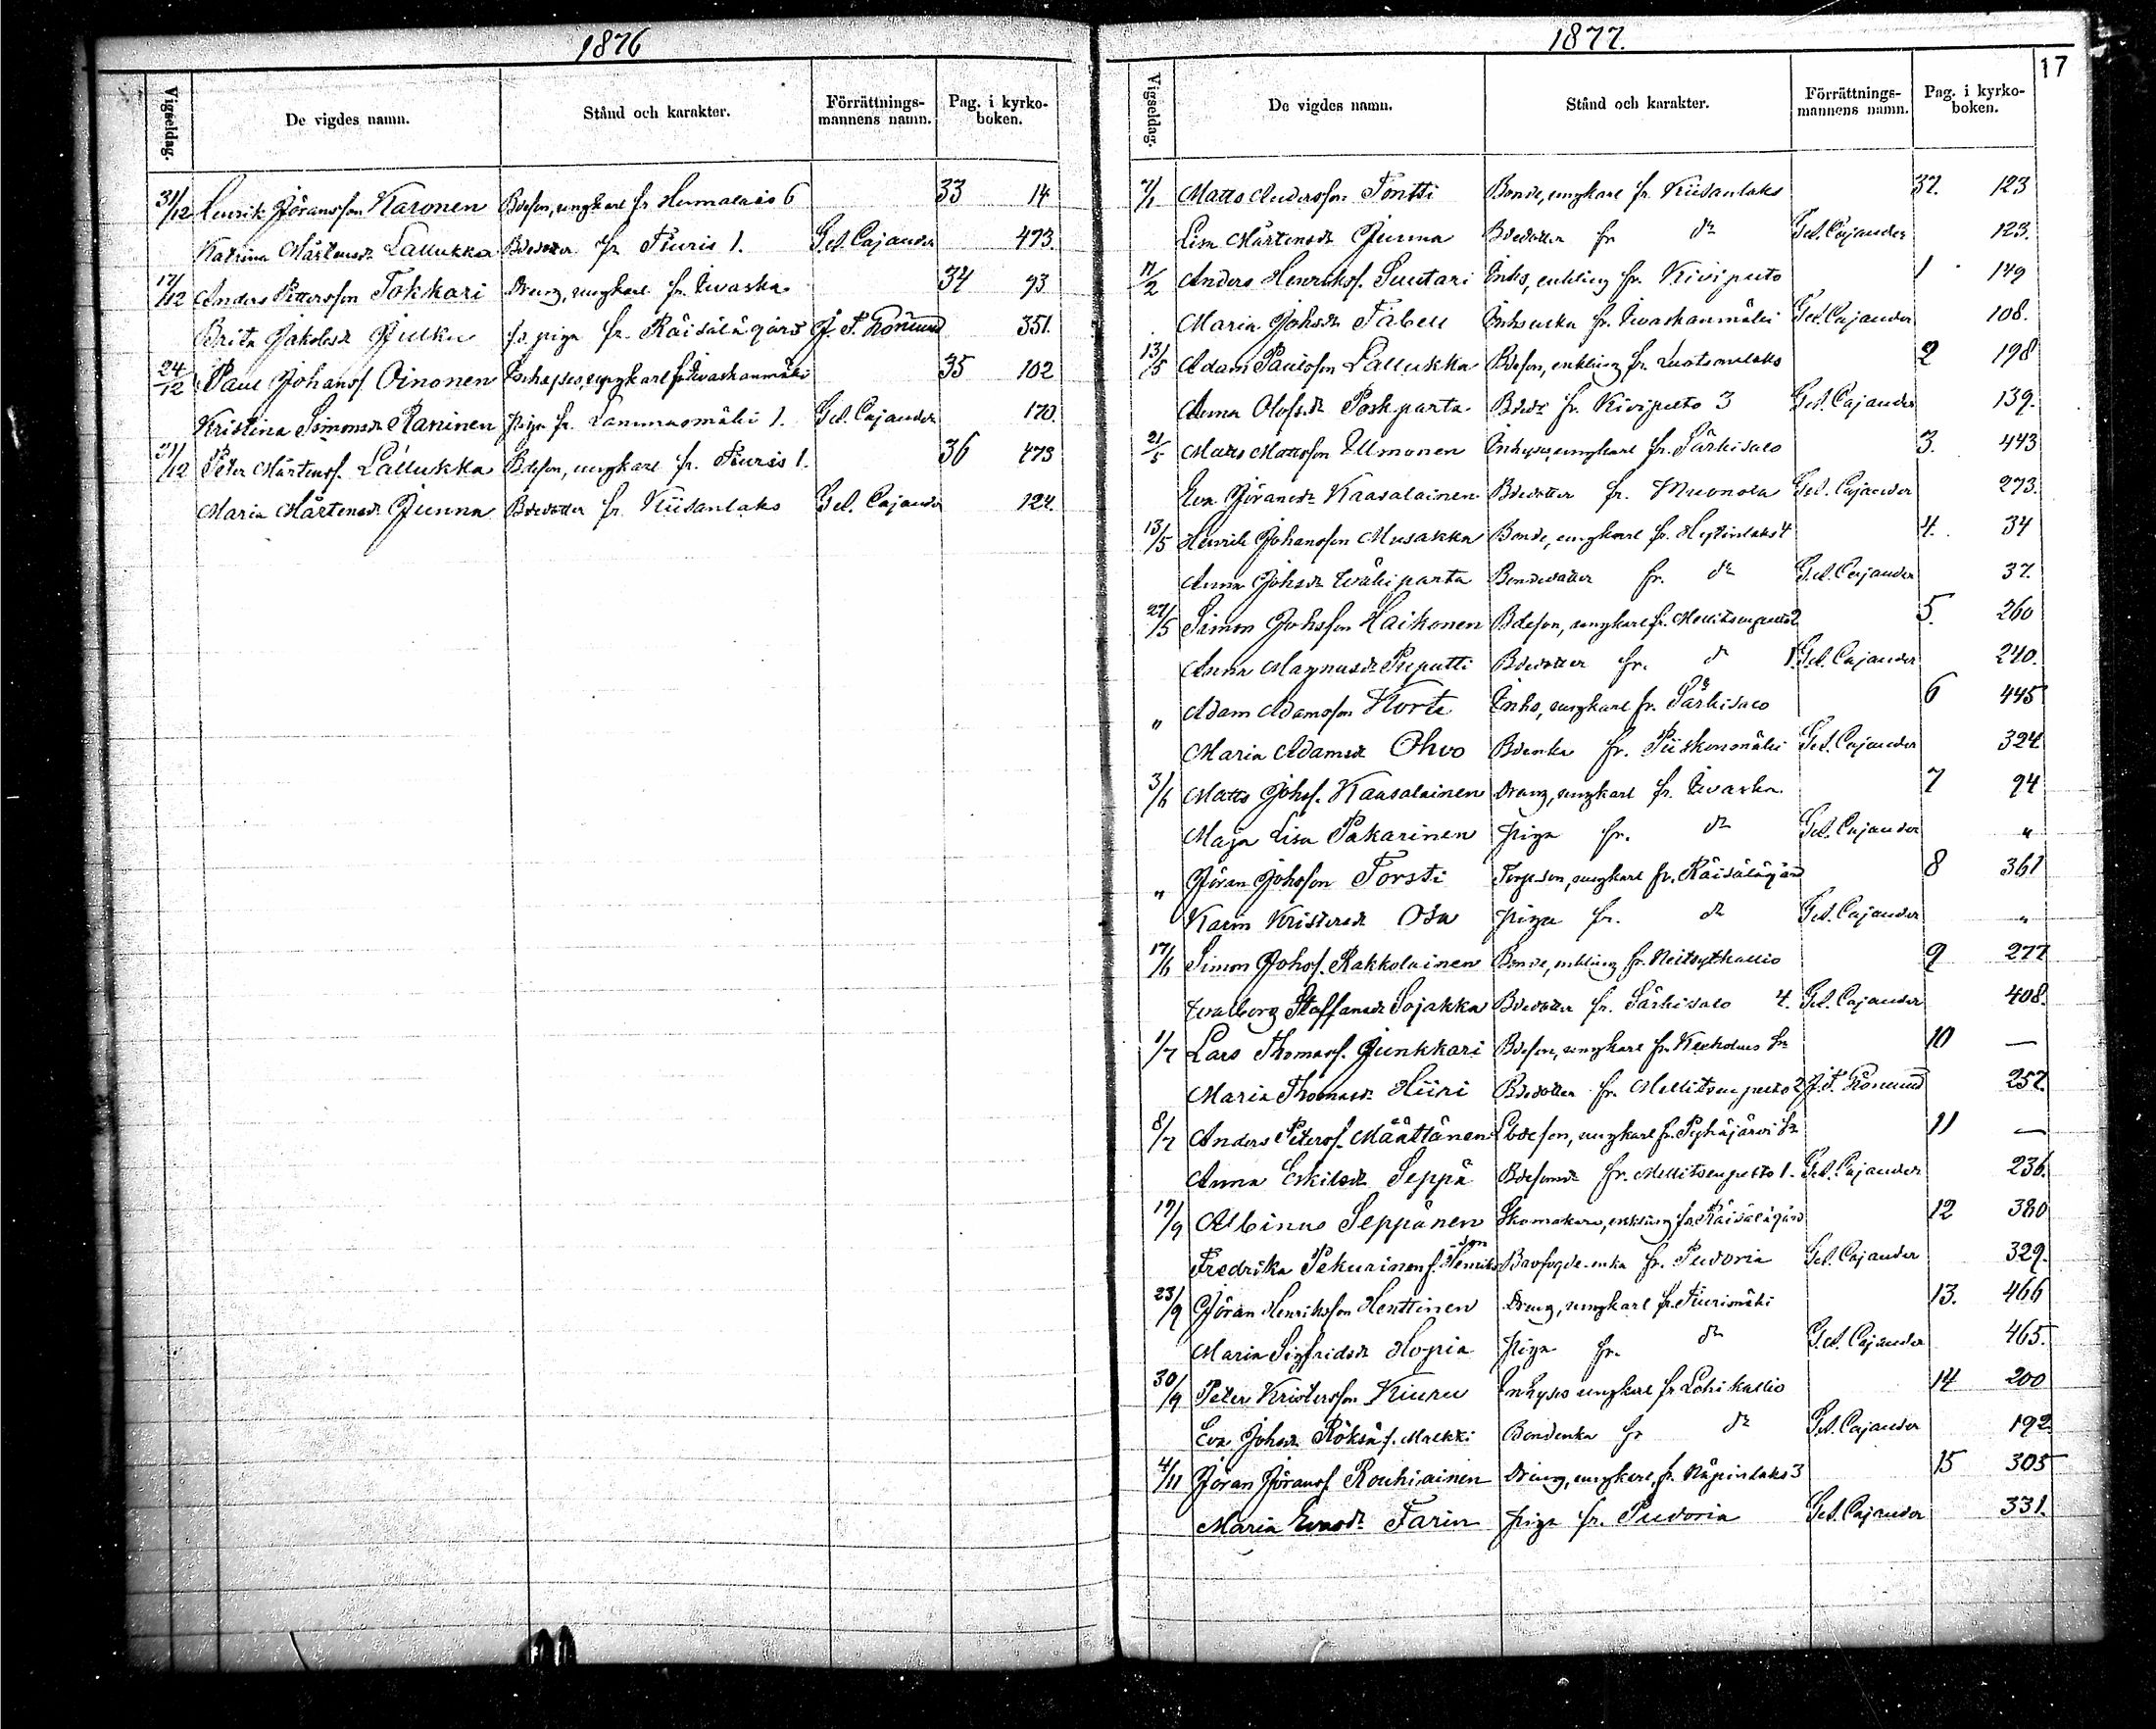 1876
Vigseldag. De vigdes namn. Stånd och karakter. Förrättnings-mannens namn. Pag. i kyrko-boken.
31/12 Henrik Jöransson Karonen Bdeson, ungkarl fr Humalais 6 33 14
Katrina Mårtensdr Lallukka Bdedotter fr Tiuris 1. G.A. Cajander 473.
17/12 Anders Pettersson Tokkari Dräng, ungkarl fr. Ivaska 34 93
Brita Jakobsdr Julku piga fr. Räisälägård J. F. Grönlund 351.
24/12 Paul Johansf Oinonen ungkarl fr Ivaskanmäki 35 102
Kristina Simonsdr Raninen piga fr. Lammasmäki 1. G.A. Cajander 170.
31/12 Peter Mårtensf. Lallukka Bdeson, ungkarl fr. Tiuris 1. 36 473
Maria Mårtensdr Junna Bdedotter fr Kiisanlaks G.A. Cajander 124.
1877.
17
Vigseldag. De vigdes namn. Stånd och karakter. Förrättnings-mannens namn. Pag. i kyrko-boken.
7/1 Matts Andersson Tontti Bonde, ungkarl fr. Kiisanlaks 37. 123
Lisa Mårtensdr Junna Bdedotter fr do G.A. Cajander 123.
11/2 Anders Henriksf. Suutari Inhs, enkling fr. Kivipelto 1 149
Maria Johsdr Tabell Inhsenka fr. Ivaskanmäki G.A. Cajander 108.
13/5 Adam Paulsson Lallukka Bdeson, enkling fr. 2 198
Anna Olofsdr Poskparta Bdedr fr. Kivipelto 3 G.A. Cajander 139.
21/5 Matts Mattsson Ulmonen Inhyses, ungkarl fr. Särkisalo 3. 443
Eva Jöransdr Kaasalainen Bdedotter fr. Unnunkoski G.A. Cajander 273.
13/5 Henrik Johansson Musakka Bonde, ungkarl fr. Hytinlaks 4 4. 34
Anna Johsdr Wäkiparta Bondedotter fr. do G.A. Cajander 37.
27/5 Simon Johsson Haikonen Bdeson, ungkarl fr. Mellitsenpelto 2 5. 260
Anna Magnusdr Piiputti Bdedotter fr. do 1. G.A. Cajander 240.
" Adam Adamsson Korte Inhs, ungkarl fr. Särkisalo 6 445
Maria Adamsdr Ohvo Bdenka fr. Piiskonmäki G.A. Cajander 324
3/6 Matts Johsf. Kaasalainen Dräng, ungkarl fr. Ivaska 7 94
Maja Lisa Pakarinen piga fr. do G.A. Cajander "
" Jöran Johsson Torsti Torpson, ungkarl fr. Räisälägård 8 361
Karin Kristersdr Osa piga fr. do G.A. Cajander "
17/6 Simon Johsf. Rakkolainen Bonde, enkling fr. Neitsytkallio 9 277
Walborg Staffansdr Sojakka Bdedotter fr. Särkisalo 4. G.A. Cajander 408.
1/7 Lars Thomasf. Junkkari Bdeson, ungkarl fr. Kexholms fr 10 —
Maria Thomasdr Hiiri Bdedotter fr. Mellitsenpelto 2 J. F. Grönlund 257.
8/7 Anders Petersf. Määttänen Lbdeson, ungkarl fr. Pyhäjärvi fr 11 —
Anna Eskilsdr Seppä Bdesonsdr fr. Mellitsenpelto 1. G.A. Cajander 236.
19/9 Albinus Seppänen Skomakare, enkling fr. Räisälägård 12 380
Fredrika Pekurinen f. Henriksson enka fr. Pudoria G.A. Cajander 329.
23/9 Jöran Henriksson Henttinen Dräng, ungkarl fr. Tiurimäki 13. 466
Maria Sigfridsdr Hopia piga fr. do G.A. Cajander 465.
30/9 Peter Kristersson Kiuru Inhyses ungkarl fr Lohikallio 14 200
Eva Johsdr Röksä f. Malkki Bondenka fr do G.A. Cajander 192.
4/11 Jöran Jöransf. Rouhiainen Dräng, ungkarl, fr. Näpinlaks 3 15 305
Maria Evasdr Farin piga fr. Pudoria G.A. Cajander 331.